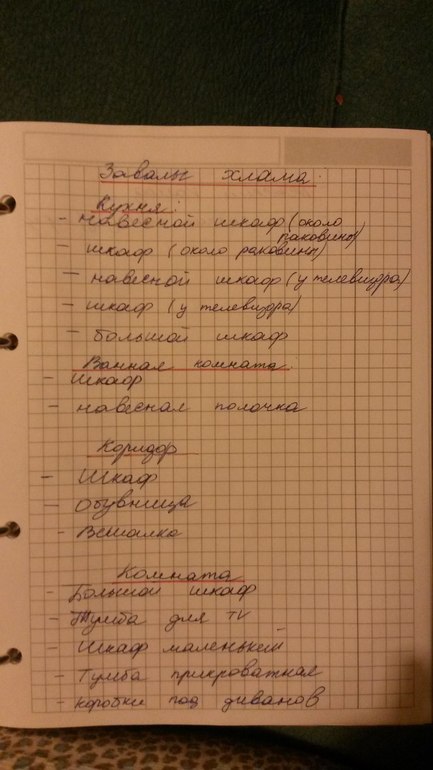 Завалы хлама:
Кухня:
- навесной шкаф (около
раковины)
- шкаф (около раковины)
- навесной шкаф (у телевизора)
- шкаф (у телевизора)
- большой шкаф
Ванная комната:
- шкаф
- навесная полочка
Коридор
- Шкаф
- Обувница
- Вешалка
Комната
- Большой шкаф
- Тумба для TV
- Шкаф маленький
- Тумба прикроватная
- коробки под диваном